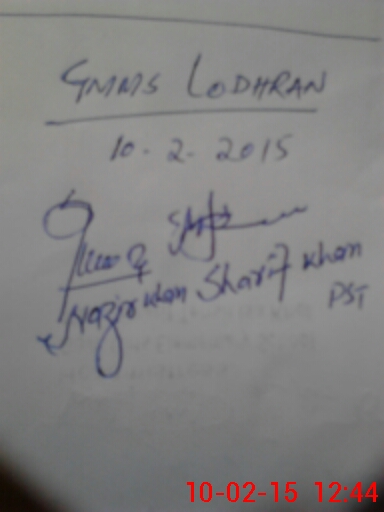 GMMS LODHRAN
10-2-2015
Nazir Khan Sharif Khan
PST
10-02-15 12:44